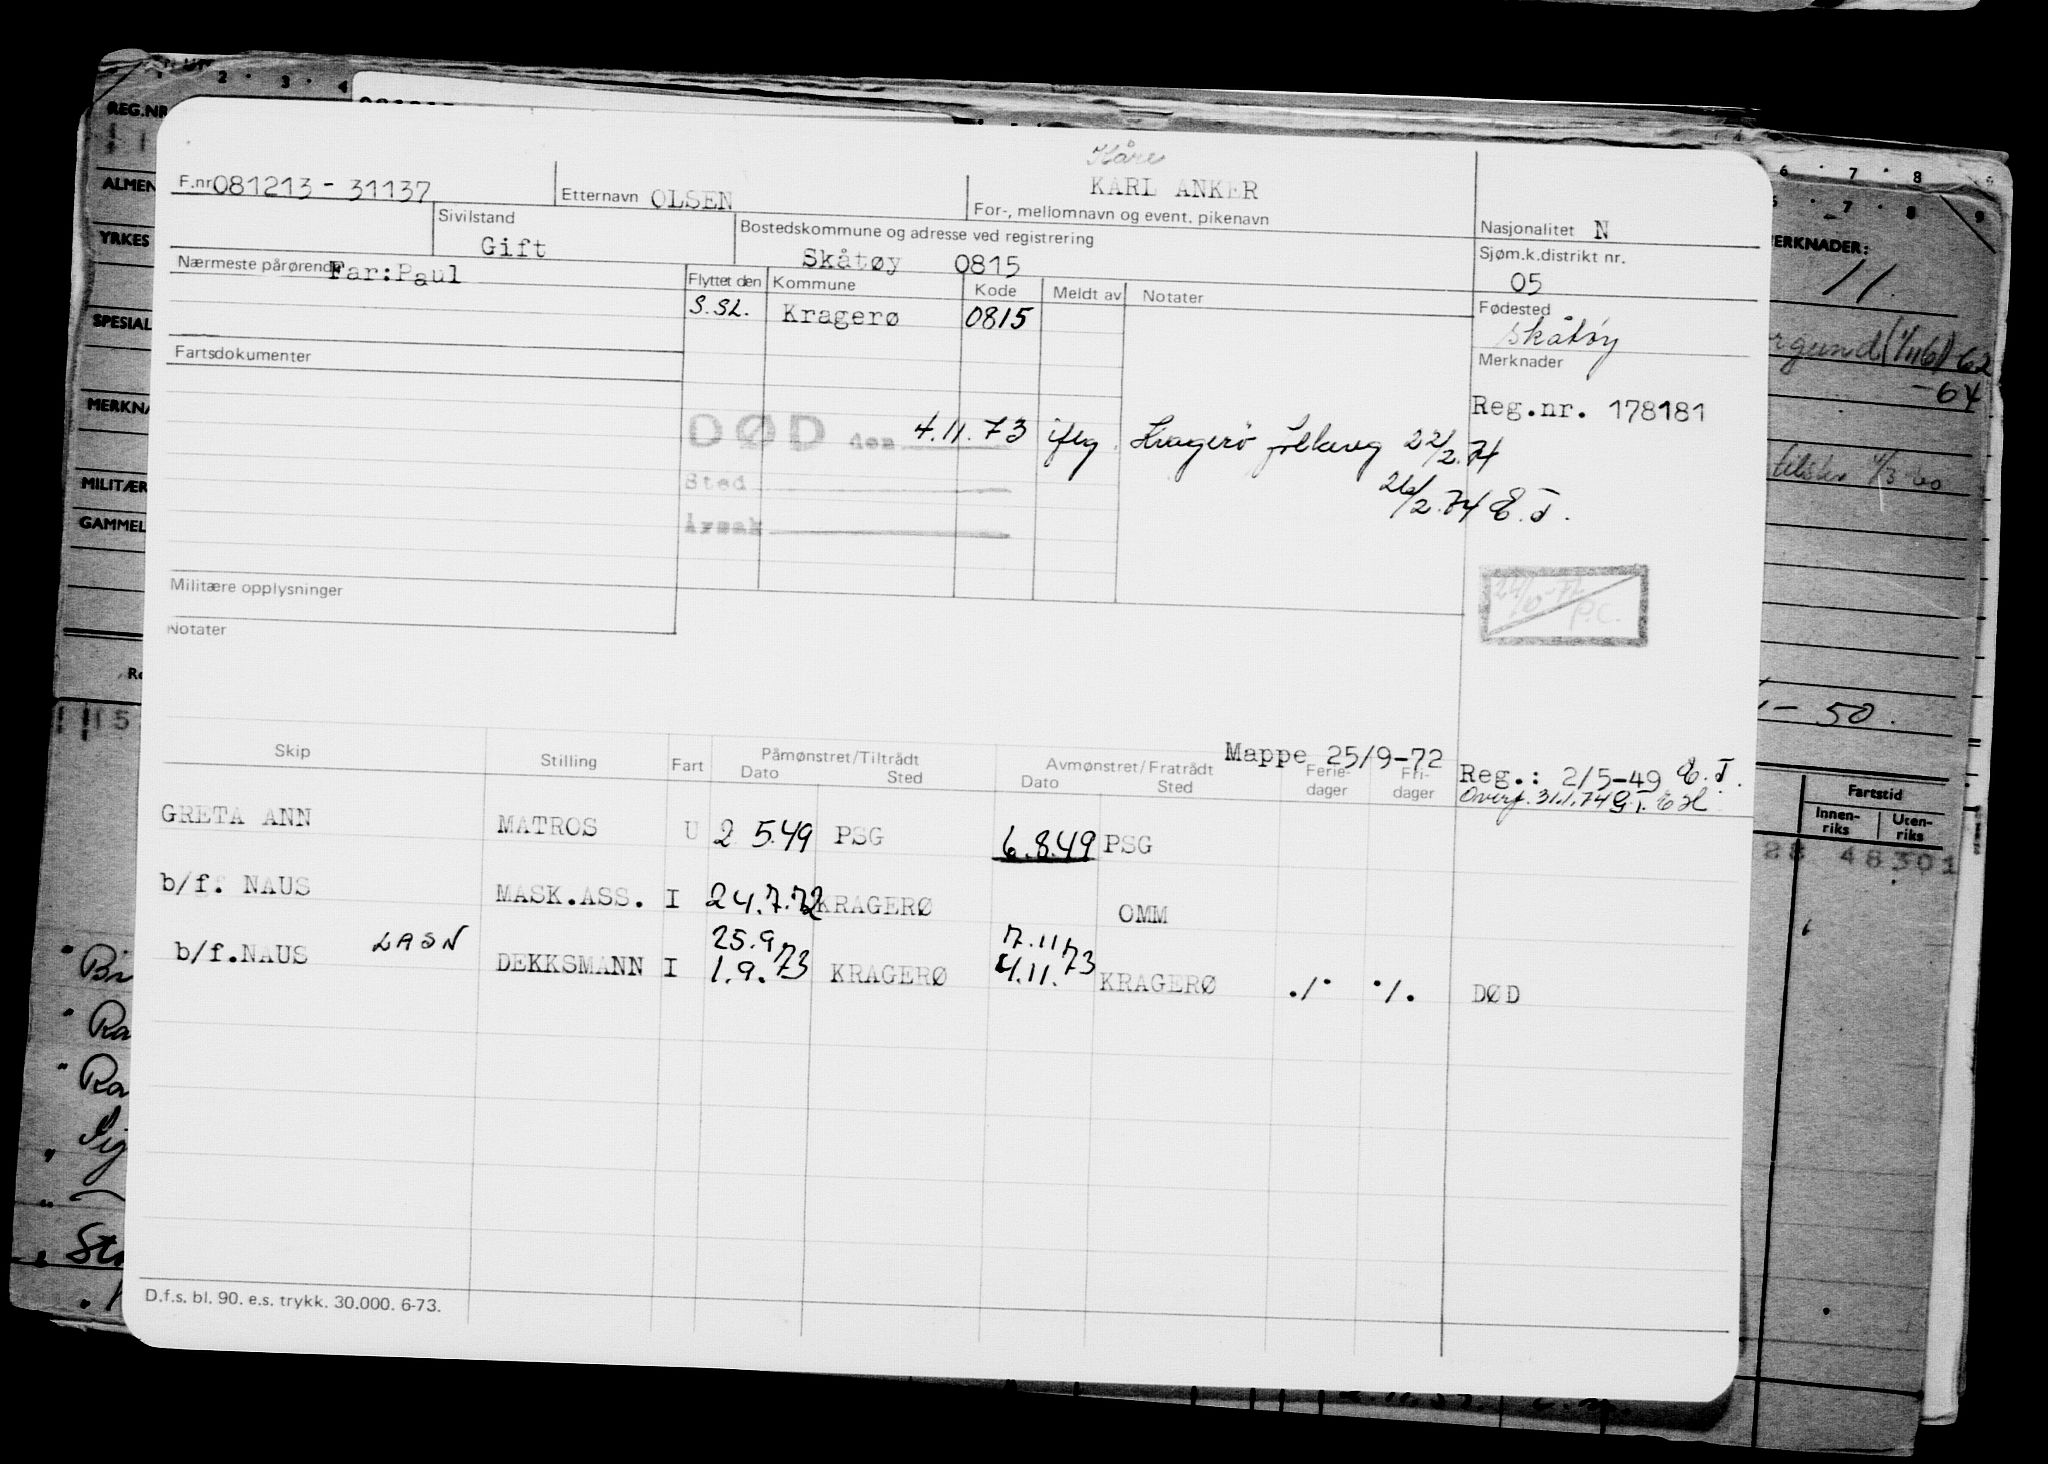 1 · 2 · 3 · 4
REG.NR
ALMEN
YRKES
SPESIAL
MERKNA
MILITÆR
GAMMEL
6 · 7 · 8
7 · 8 9
MERKNADER:
11.
-64
- 50.
Fartstid
Innen-
riks
Uten-
riks
28 48301
Kåre
F.nr. 081213 - 31137 Etternavn OLSEN KARL ANKER
For-, mellomnavn og event. pikenavn
Nasjonalitet N
Sivilstand
Gift
Bostedskommune og adresse ved registrering
Skåtøy 0815
Sjøm.k.distrikt nr.
05
Nærmeste pårørende Far:Paul
Flyttet den Kommune Kode Meldt av Notater
S.SL. Kragerø 0815
Fødested
Skåtøy
Fartsdokumenter
Merknader
Reg.nr. 178181
DØD den 4.11.73 iflg. Kragerø folkereg 22/2.74
Sted
26/2.74 E.T.
Årsak
Militære opplysninger
P.C.
Notater
Mappe 25/9-72
Reg.: 2/5-49 E.T.
Overf. 31.1.74 G.T. E H
Skip Stilling Fart Påmønstret/Tiltrådt Avmønstret/Fratrådt Ferie- Fri-
Dato Sted Dato Sted dager dager
GRETA ANN MATROS U 2 5.49 PSG 6.8.49 PSG
b/f. NAUS MASK.ASS. I 24.7.72 KRAGERØ OMM
25.9. 7.11
b/f.NAUS LASN DEKKSMANN I 1.9.73 KRAGERØ 4.11.73 KRAGERØ ./· ·/. DØD
D.f.s. bl. 90. e.s. trykk. 30.000. 6-73.